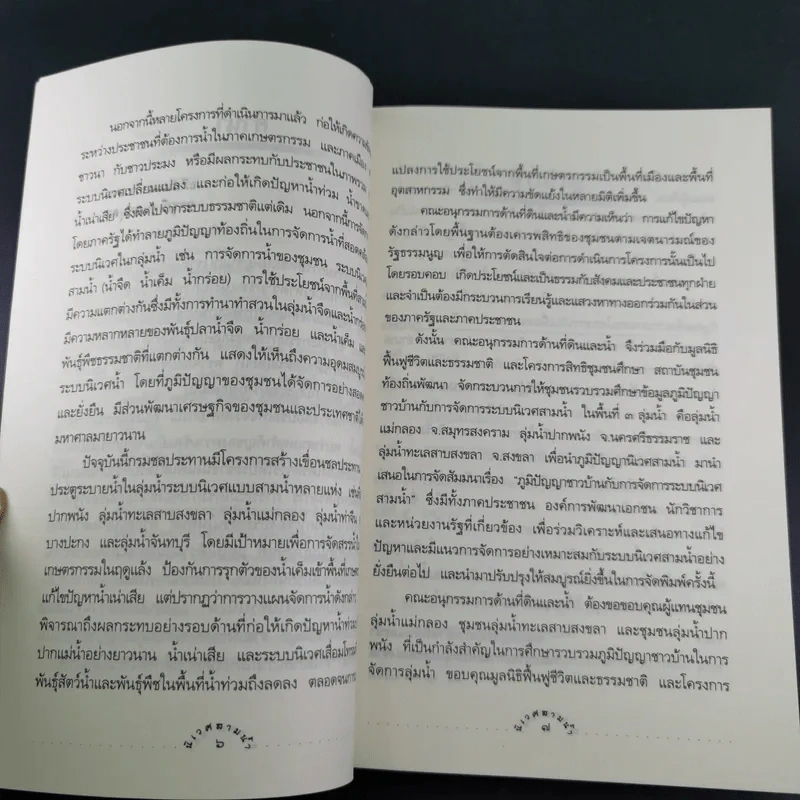 นอกจากนี้หลายโครงการที่ดำเนินการมาแล้ว ก่อให้เกิดความ
ระหว่างประชาชนที่ต้องการน้ำในภาคเกษตรกรรม และภาคเมือง
ชาวนา กับชาวประมง หรือมีผลกระทบกับประชาชนในภาพรวม
ระบบนิเวศเปลี่ยนแปลง และก่อให้เกิดปัญหาน้ำท่วม
น้ำเน่าเสีย ซึ่งผิดไปจากระบบธรรมชาติแต่เดิม นอกจากนี้การจัดการ
โดยภาครัฐได้ทำลายภูมิปัญญาท้องถิ่นในการจัดการน้ำที่สอดคล้อง
ระบบนิเวศในลุ่มน้ำ เช่น การจัดการน้ำของชุมชน ระบบนิเวศ
สามน้ำ (น้ำจืด น้ำเค็ม น้ำกร่อย) การใช้ประโยชน์จากพื้นที่
มีความแตกต่างกันซึ่งมีทั้งการทำนาทำสวนในลุ่มน้ำจืดและน้ำกร่อย
มีความหลากหลายของพันธุ์ปลาน้ำจืด น้ำกร่อย และน้ำเค็ม
พันธุ์พืชธรรมชาติที่แตกต่างกัน แสดงให้เห็นถึงความอุดมสมบูรณ์
ระบบนิเวศน้ำ โดยที่ภูมิปัญญาของชุมชนได้จัดการอย่าง
และยั่งยืน มีส่วนพัฒนาเศรษฐกิจของชุมชนและประเทศชาติได้
มหาศาลมายาวนาน
ปัจจุบันนี้กรมชลประทานมีโครงการสร้างเขื่อนชลประทาน
ประตูระบายน้ำในลุ่มน้ำระบบนิเวศแบบสามน้ำหลายแห่ง เช่น
ปากพนัง ลุ่มน้ำทะเลสาบสงขลา ลุ่มน้ำแม่กลอง ลุ่มน้ำท่าจีน
บางปะกง และลุ่มน้ำจันทบุรี โดยมีเป้าหมายเพื่อการจัดสรรน้ำ
เกษตรกรรมในฤดูแล้ง ป้องกันการรุกตัวของน้ำเค็มเข้าพื้นที่
แก้ไขปัญหาน้ำเน่าเสีย แต่ปรากฏว่าการวางแผนจัดการน้ำดังกล่าว
พิจารณาถึงผลกระทบอย่างรอบด้านที่ก่อให้เกิดปัญหาน้ำท่วม
ปากแม่น้ำอย่างยาวนาน น้ำเน่าเสีย และระบบนิเวศเสื่อมโทรม
พันธุ์สัตว์น้ำและพันธุ์พืชในพื้นที่น้ำท่วมถึงลดลง ตลอดจนการ
นิเวศสามน้ำ
๖
แปลงการใช้ประโยชน์จากพื้นที่เกษตรกรรมเป็นพื้นที่เมืองและพื้นที่
อุตสาหกรรม ซึ่งทำให้มีความขัดแย้งในหลายมิติเพิ่มขึ้น
คณะอนุกรรมการด้านที่ดินและน้ำมีความเห็นว่า การแก้ไขปัญหา
ดังกล่าวโดยพื้นฐานต้องเคารพสิทธิของชุมชนตามเจตนารมณ์ของ
รัฐธรรมนูญ เพื่อให้การตัดสินใจต่อการดำเนินการโครงการนั้นเป็นไป
โดยรอบคอบ เกิดประโยชน์และเป็นธรรมกับสังคมและประชาชนทุกฝ่าย
และจำเป็นต้องมีกระบวนการเรียนรู้และแสวงหาทางออกร่วมกันในส่วน
ของภาครัฐและภาคประชาชน
ดังนั้น คณะอนุกรรมการด้านที่ดินและน้ำ จึงร่วมมือกับมูลนิธิ
ฟื้นฟูชีวิตและธรรมชาติ และโครงการสิทธิชุมชนศึกษา สถาบันชุมชน
ท้องถิ่นพัฒนา จัดกระบวนการให้ชุมชนรวบรวมศึกษาข้อมูลภูมิปัญญา
ชาวบ้านกับการจัดการระบบนิเวศสามน้ำ ในพื้นที่ ๓ ลุ่มน้ำ คือลุ่มน้ำ
แม่กลอง จ.สมุทรสงคราม ลุ่มน้ำปากพนัง จ.นครศรีธรรมราช และ
ลุ่มน้ำทะเลสาบสงขลา จ.สงขลา เพื่อนำภูมิปัญญานิเวศสามน้ำ มานำ
เสนอในการจัดสัมมนาเรื่อง "ภูมิปัญญาชาวบ้านกับการจัดการระบบนิเวศ
สามน้ำ" ซึ่งมีทั้งภาคประชาชน องค์การพัฒนาเอกชน นักวิชาการ
และหน่วยงานรัฐที่เกี่ยวข้อง เพื่อร่วมวิเคราะห์และเสนอทางแก้ไข
ปัญหาและมีแนวการจัดการอย่างเหมาะสมกับระบบนิเวศสามน้ำอย่าง
ยั่งยืนต่อไป และนำมาปรับปรุงให้สมบูรณ์ยิ่งขึ้นในการจัดพิมพ์ครั้งนี้
คณะอนุกรรมการด้านที่ดินและน้ำ ต้องขอขอบคุณผู้แทนชุมชน
ลุ่มน้ำแม่กลอง ชุมชนลุ่มน้ำทะเลสาบสงขลา และชุมชนลุ่มน้ำปาก
พนัง ที่เป็นกำลังสำคัญในการศึกษารวบรวมภูมิปัญญาชาวบ้านในการ
จัดการลุ่มน้ำ ขอบคุณมูลนิธิฟื้นฟูชีวิตและธรรมชาติ และโครงการ
นิเวศสามน้ำ
๗